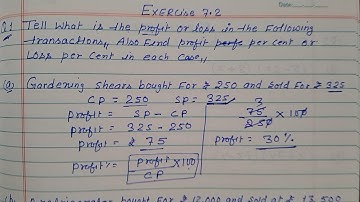 EXERCISE 7.2
Q1 Tell what is the profit or loss in the following
transactions,, Also Find profit per cent or
Loss per cent in each case,,
(a) Gardening shears bought For ₹ 250 and sold For ₹ 325
CP = 250 SP = 325
Profit = SP - CP
Profit = 325 - 250
Profit = ₹ 75
Profit% = Profit × 100
CP
3
75 × 100
250
Profit = 30%
bought For ₹ 12,000 and sold at ₹ 13,500